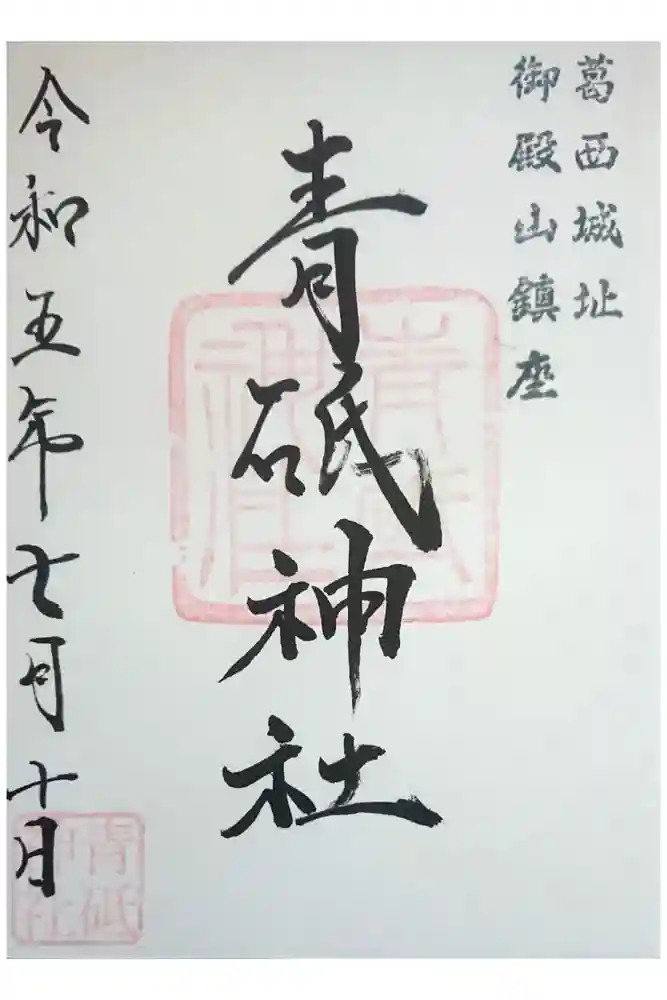 葛西城址
御殿山鎮座
青砥神社
青砥神社
令和五年七月十日
青砥神社